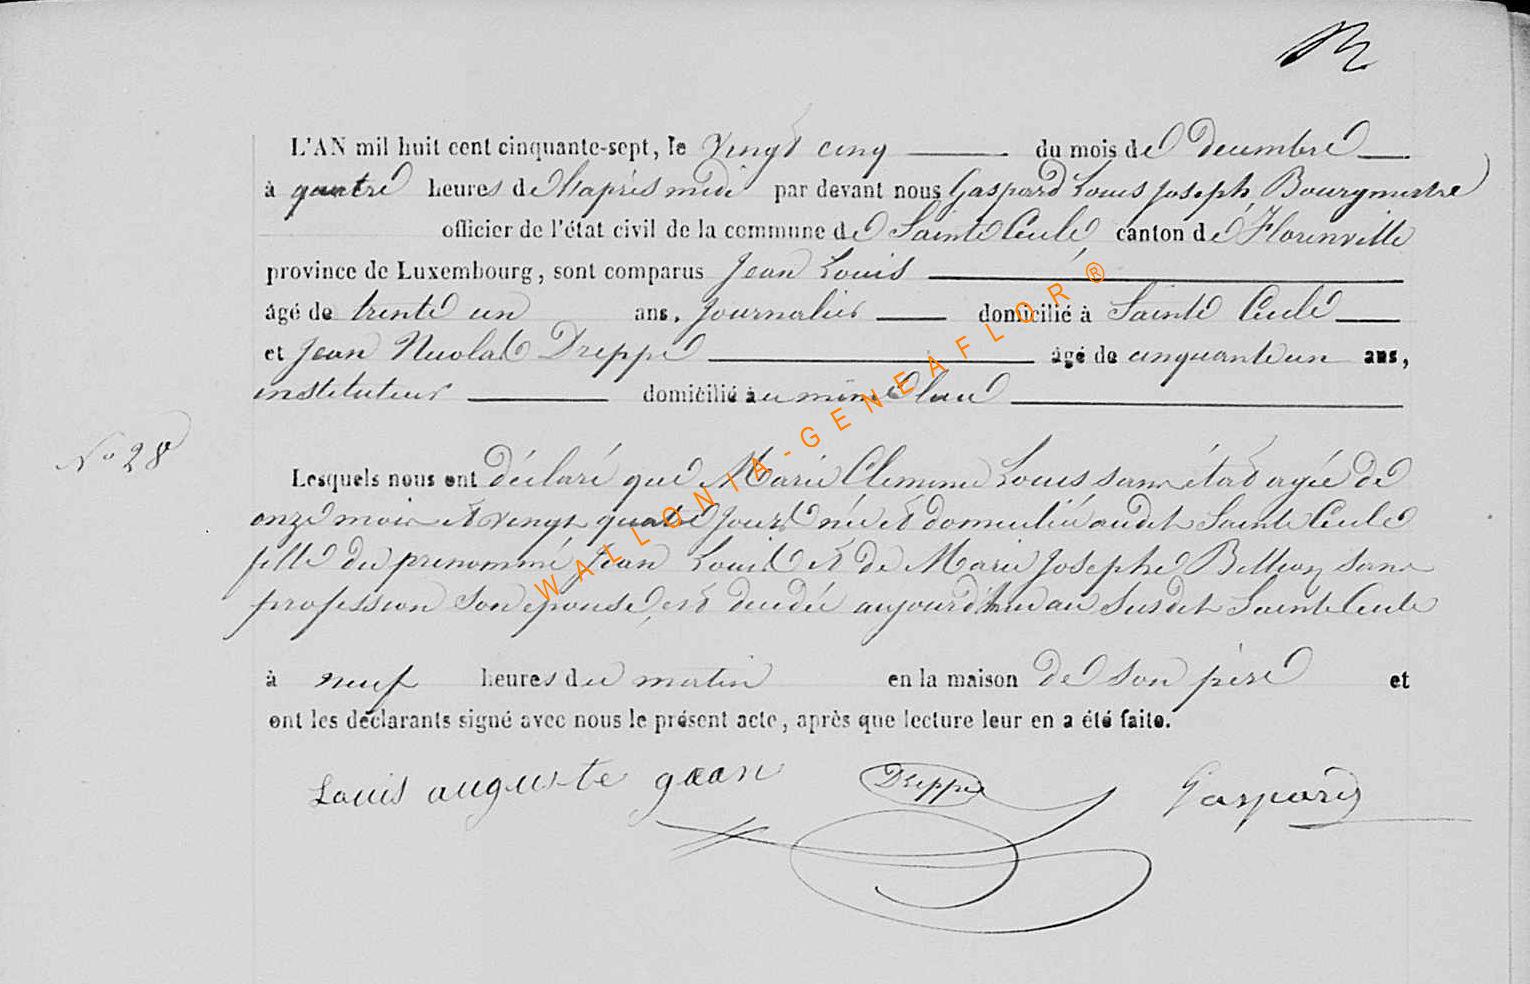 L'AN mil huit cent cinquante-sept, le vingt cinq du mois de decembre
à quatre heures de l'après midi par devant nous Gaspard Louis Joseph, Bourgmestre
officier de l'état civil de la commune de Sainte Cecile canton de Florenville
province de Luxembourg, sont comparus Jean Louis
âgé de trente un ans, journalier domicilié à Sainte Cecile
et Jean Nicolas Dreppe âgé de cinquante un ans,
instituteur domicilié au même lieu
N° 28
Lesquels nous ont déclaré que Marie Clemence Louis sans état agée de
onze mois et vingt quatre jours née et domiciliée audit Sainte Cecile
fille du prenommé Jean Louis et de Marie Josephe sans
profession son épouse, est decedée aujourd'hui au susdit Sainte Cecile
à neuf heures du matin en la maison de son père et
ont les déclarants signé avec nous le présent acte, après que lecture leur en a été faite.
Louis auguste gean Dreppe Gaspard
WALLONIA-GENEAFLOR®